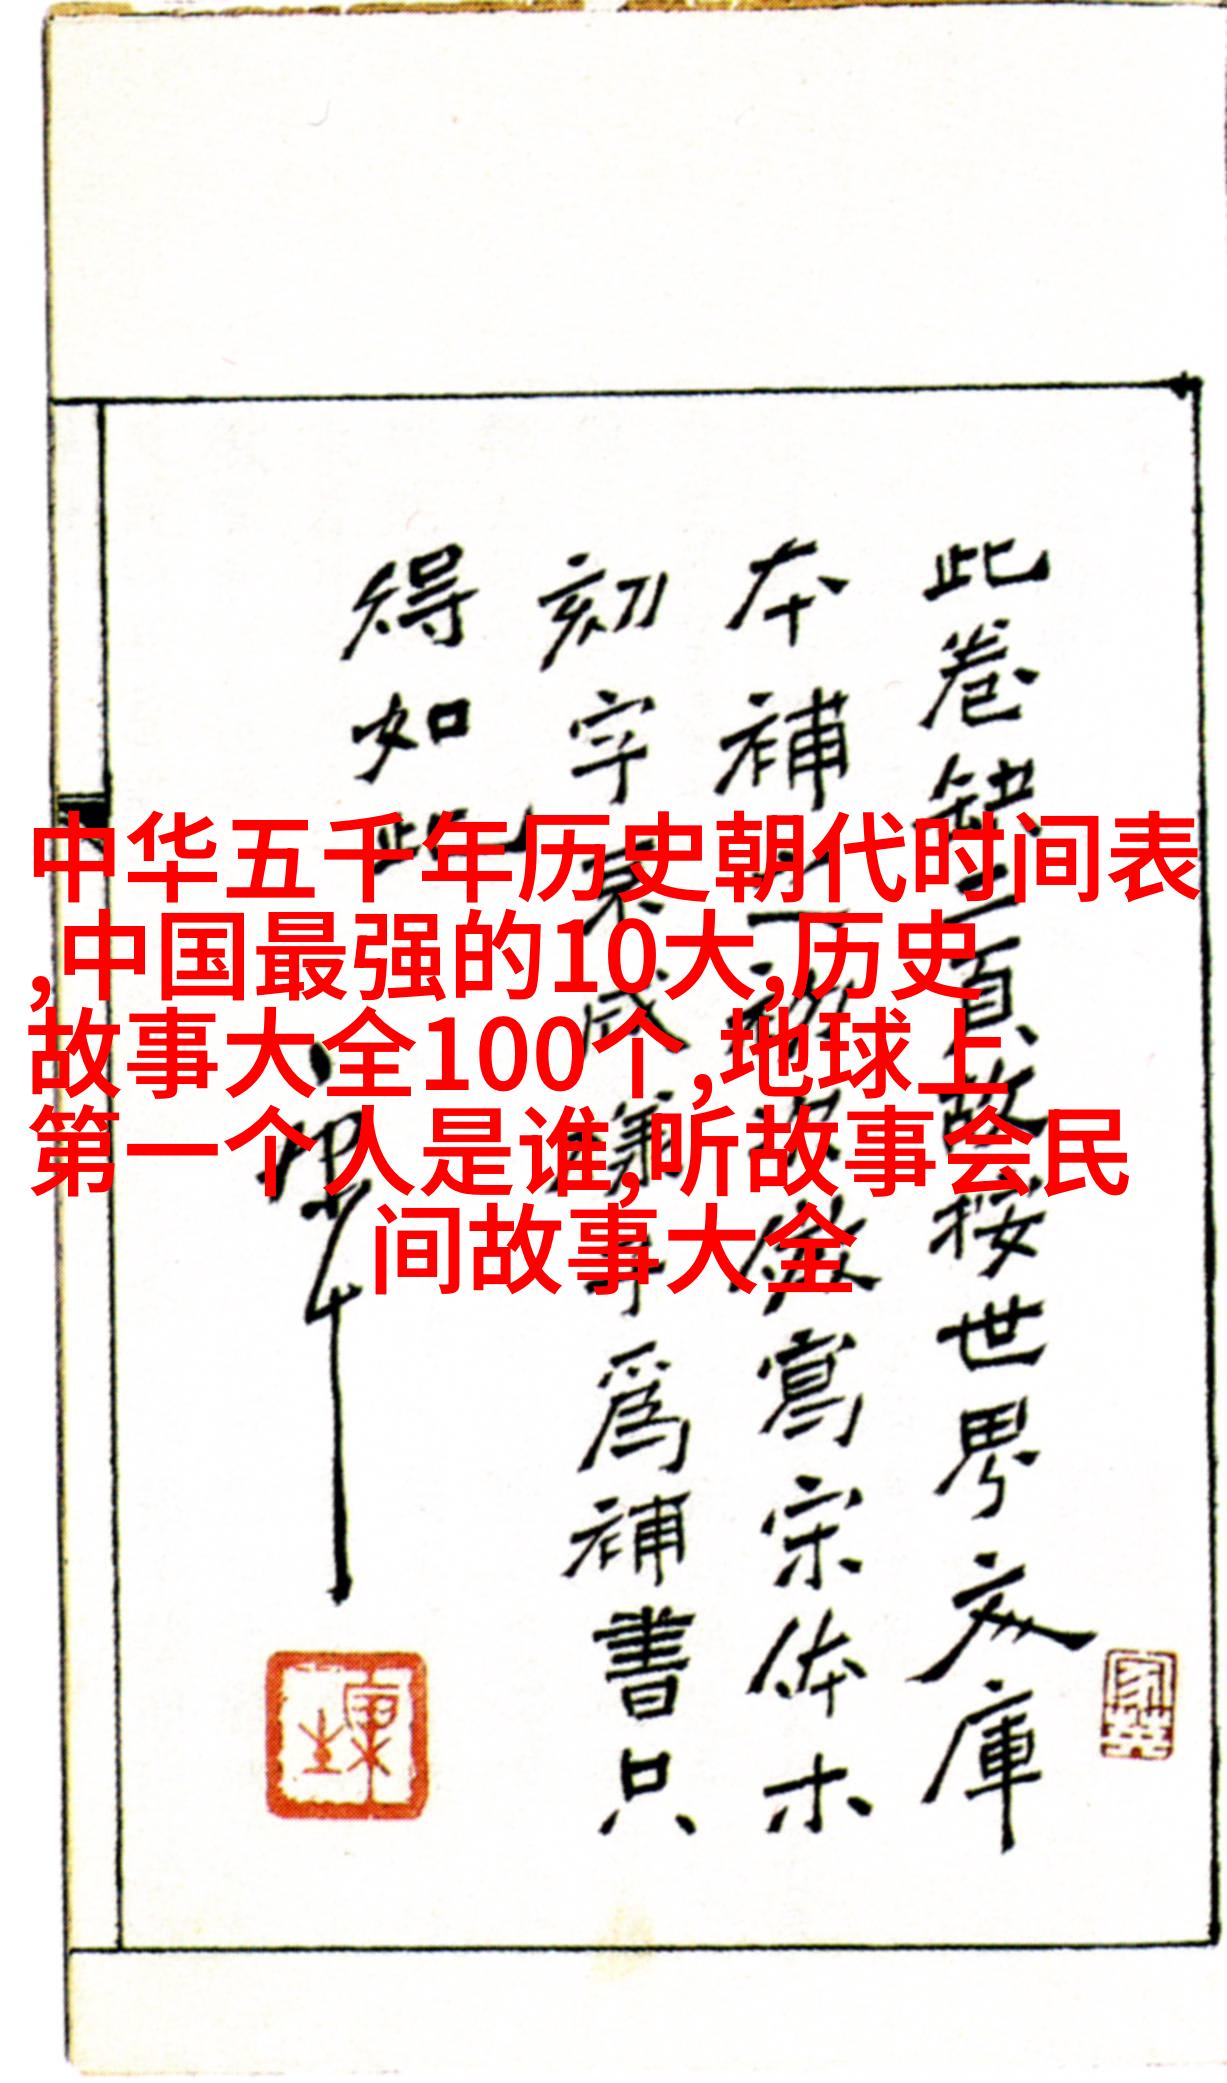 中华五千年历史朝代时间表
,中国最强的10大,历史
故事大全100个,地球上
第一个人是谁,听故事会民
间故事大全
此卷缺二頁故按世界文庫
本補之初次倣寫宋体木
刻字手爲補書只
得如此
康生